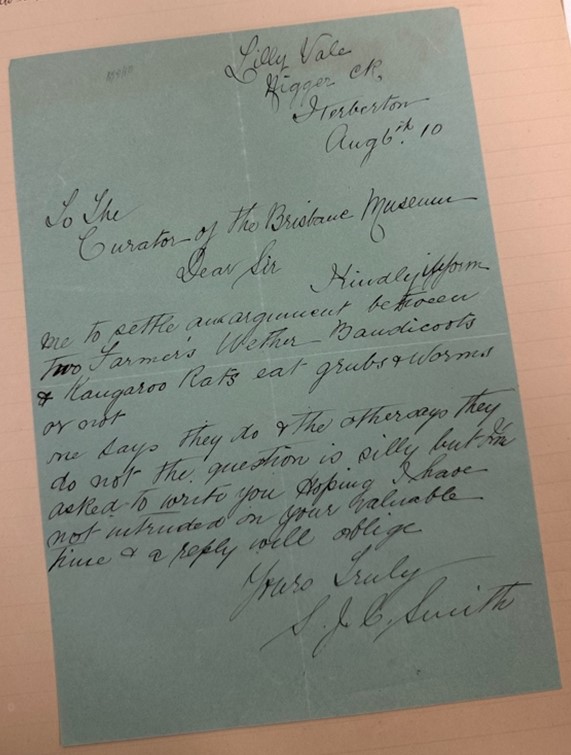 Lilly Vale
Nigger Ck,
Herberton
Aug 6th. 10
To The
Curator of the Brisbane Museum
Dear Sir
Kindly inform
me to settle an argument between
two Farmer's Wether Bandicoots
& Kangaroo Rats eat grubs & Worms
or not
one says they do & the other says they
do not the question is silly but I'm
asked to write you Hoping I have
not intruded on your valuable
time & a reply will oblige
Yours Truly
S. J. C. Smith